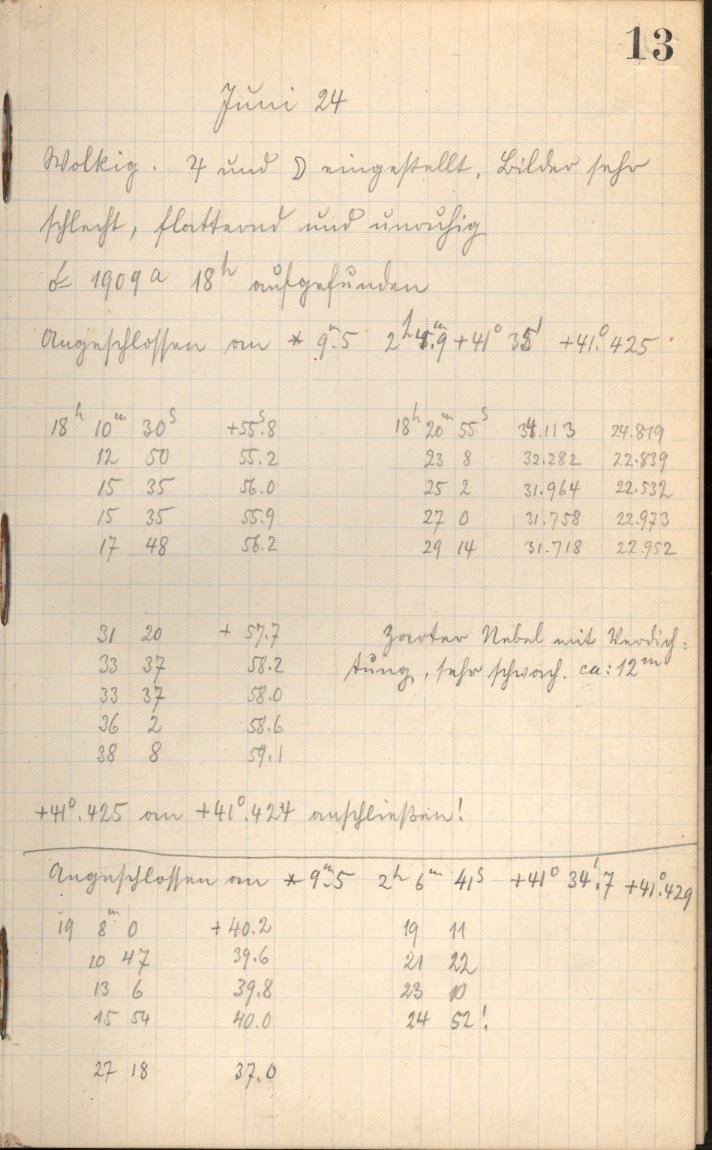 13
Juni 24
Wolkig. ♃ und ☽ eingestellt, Bilder sehr
schlecht, flatternd und unruhig
☄ 1909 a 18ʰ aufgefunden
Angeschlossen an * 9ᵐ.5 2ʰ 4ᵐ.9 +41° 35' +41°.425
18ʰ 10ᵐ 30ˢ +55ˢ.8 18ʰ 20ᵐ 55ˢ 34.113 24.819
12 50 55.2 23 8 32.282 22.839
15 35 56.0 25 2 31.964 22.532
15 35 55.9 27 0 31.758 22.973
17 48 56.2 29 14 31.718 22.952
31 20 + 57.7 Zarter Nebel mit Verdich=
33 37 58.2 tung, sehr schwach. ca: 12ᵐ
33 37 58.0
36 2 58.6
38 8 59.1
+41°.425 an +41°.424 anschließen!
Angeschlossen an * 9ᵐ.5 2ʰ 6ᵐ 41ˢ +41° 34'.7 +41°.429
19 8ᵐ 0 +40.2 19 11
10 47 39.6 21 22
13 6 39.8 23 10
15 54 40.0 24 52!
27 18 37.0